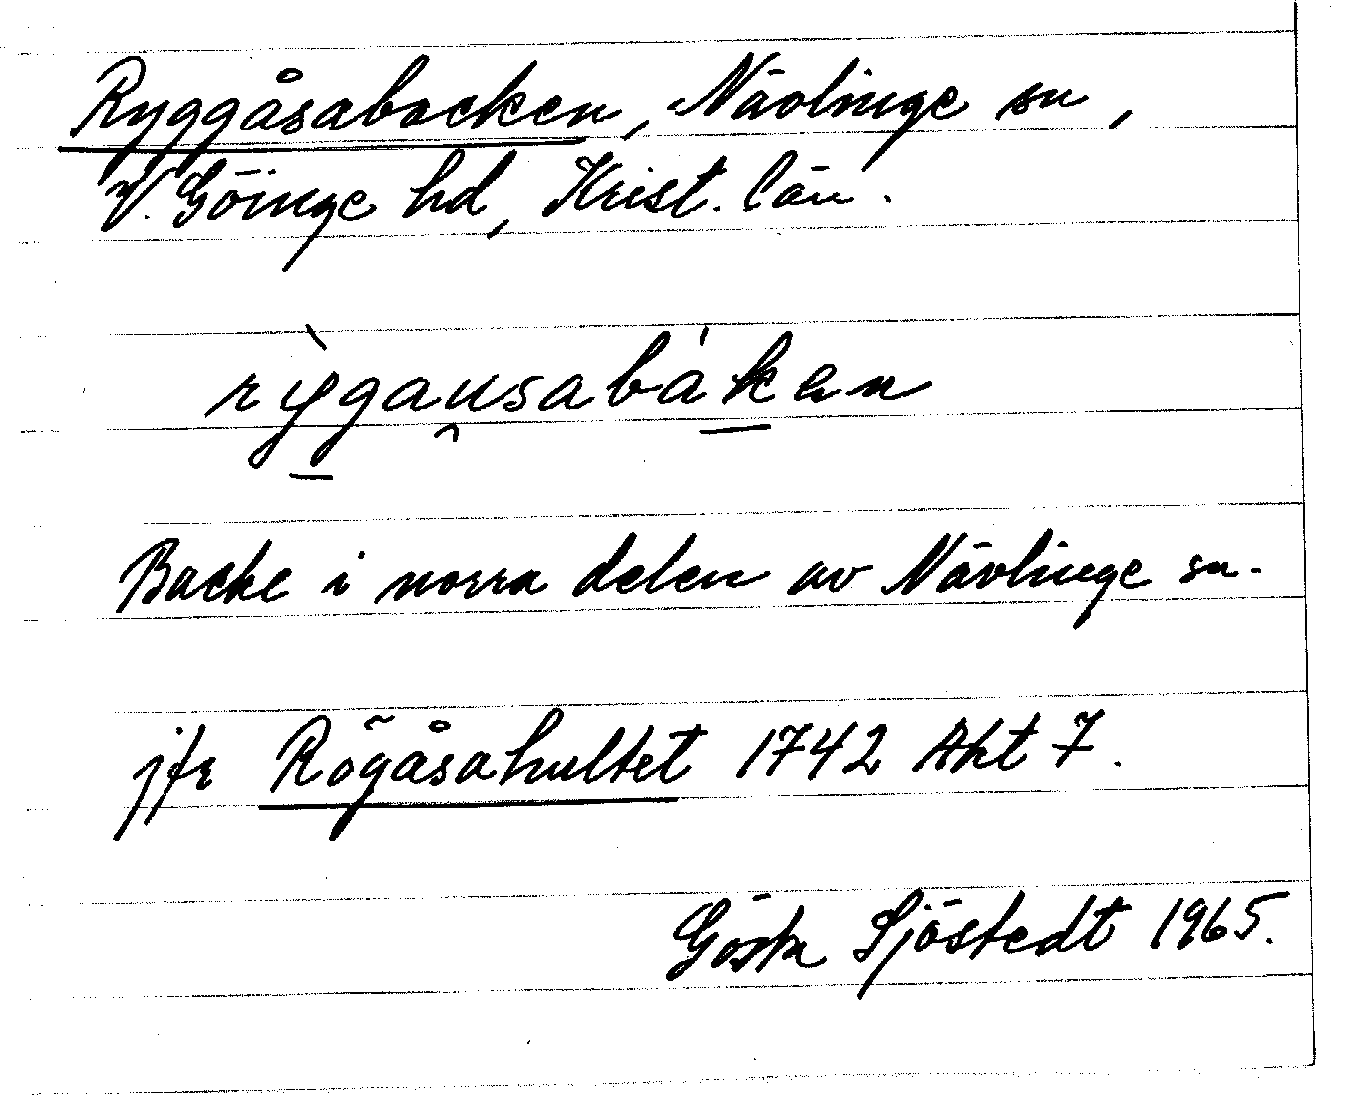 Ryggåsabacken, Nävlinge sn,
V. Göinge hd, Krist. län.
rỳgau̯sabák̲en
Backe i norra delen av Nävlinge sn.
jfr Rögåsahultet 1742 Akt 7.
Gösta Sjöstedt 1965.